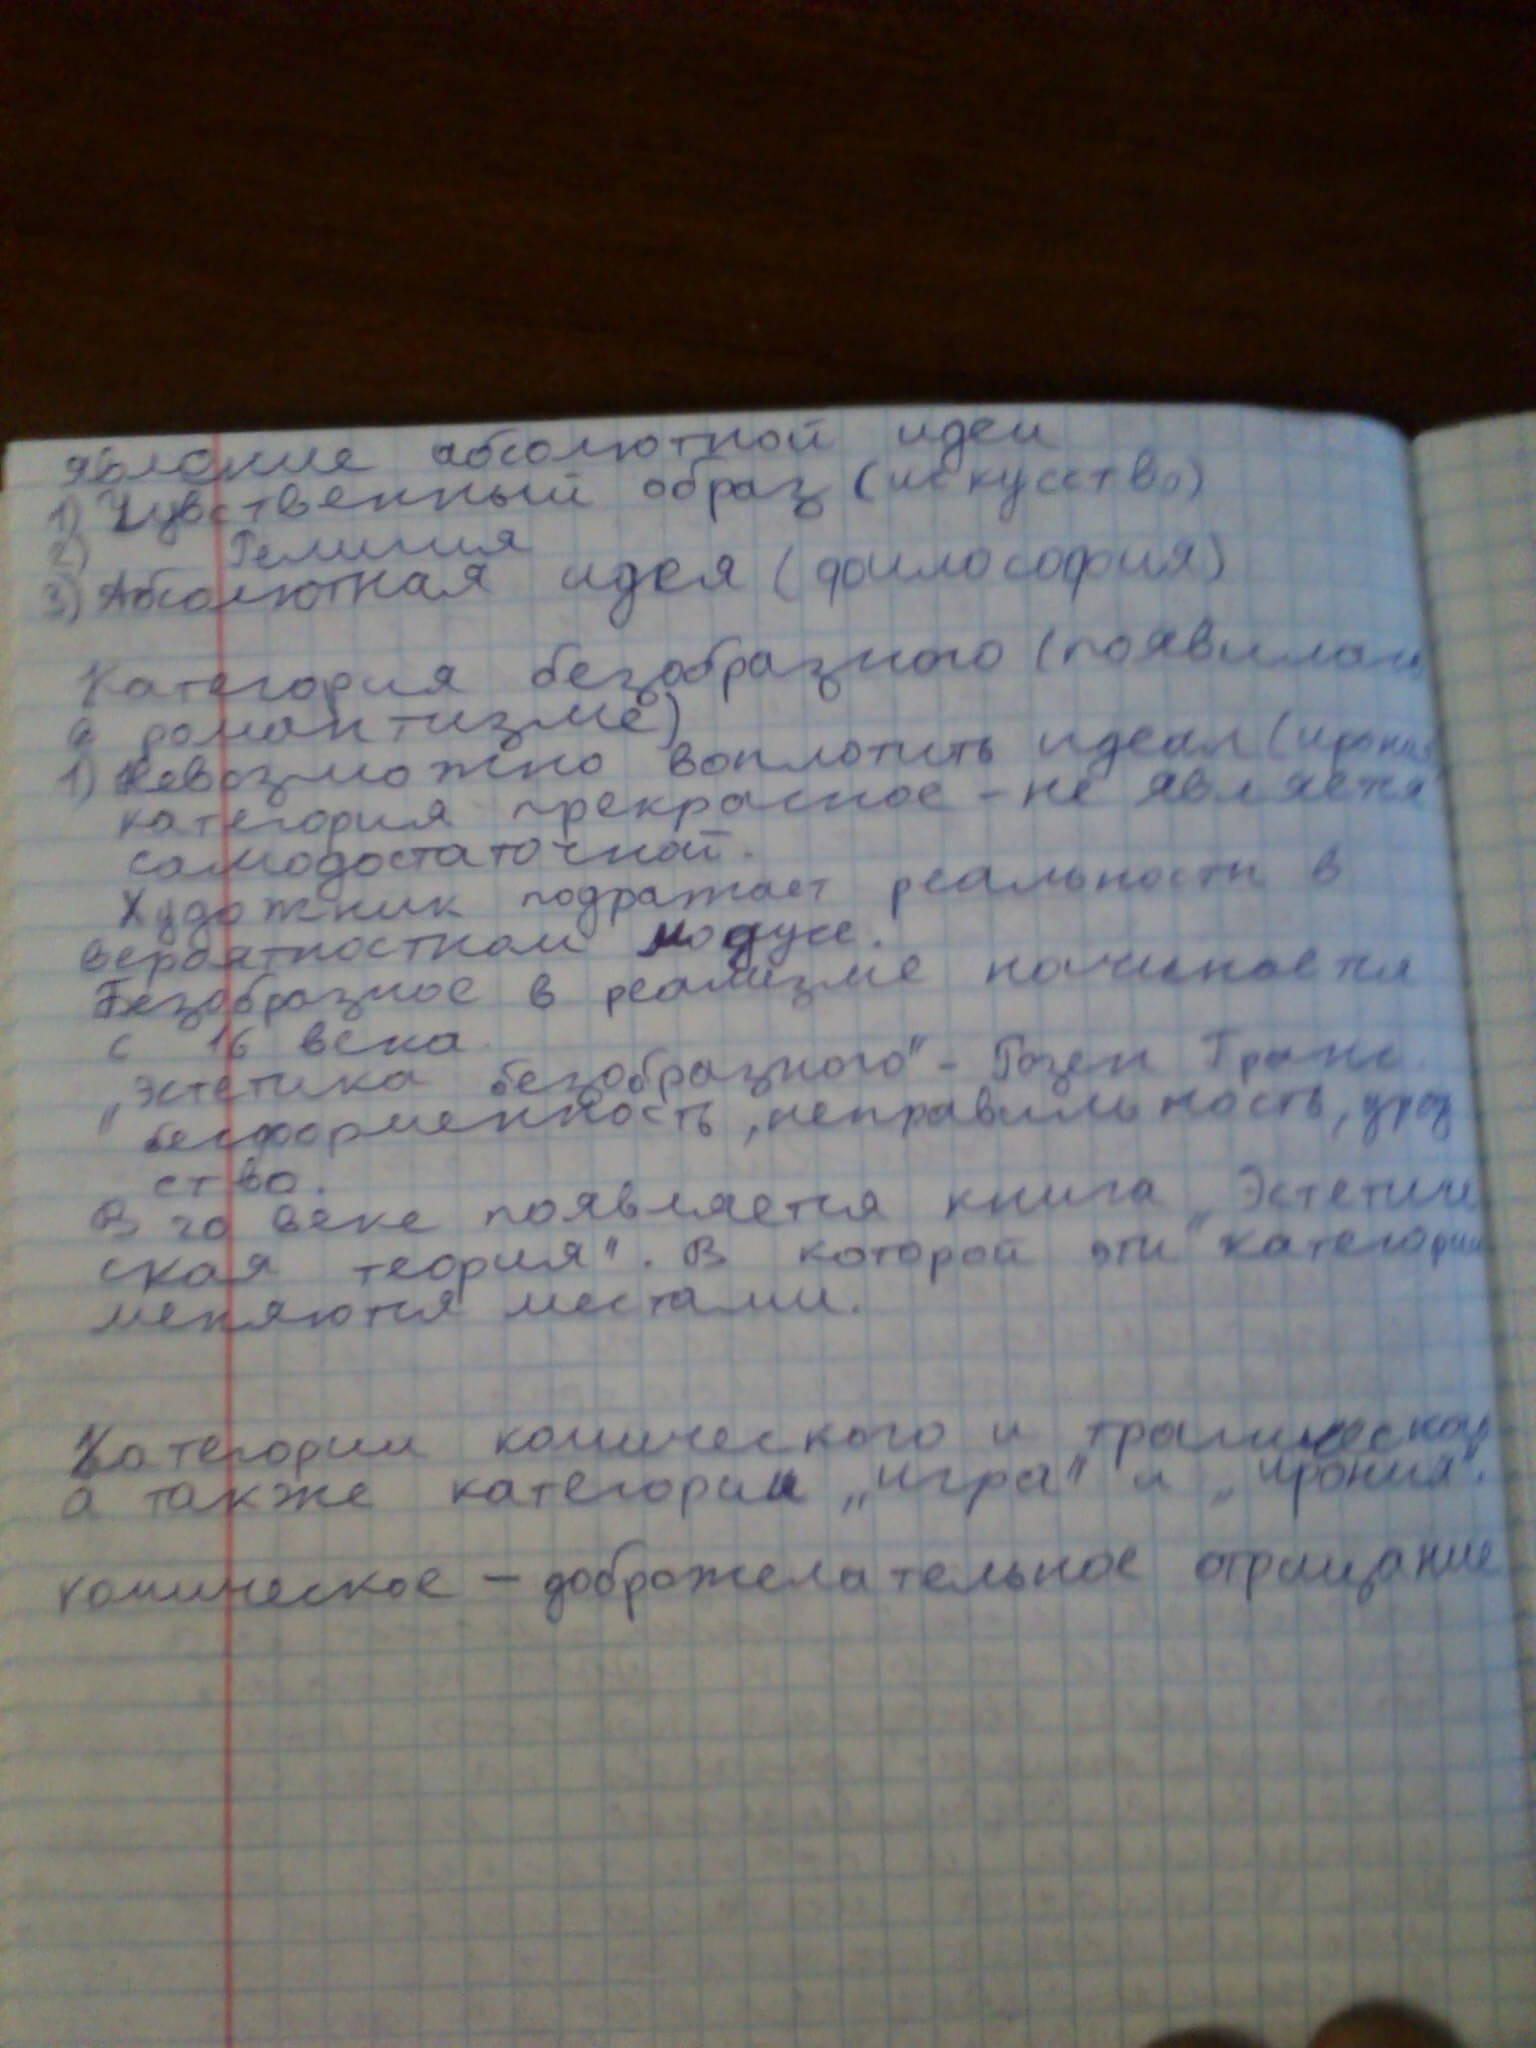 явление абсолютной идеи
1) Чувственный образ (искусство)
2) Религия
3) Абсолютная идея (философия)
Категория безобразного (появилась
в романтизме)
1) Невозможно воплотить идеал (ирония
категория прекрасное - не является
самодостаточной.
Художник подражает реальности в
вероятностном модусе.
Безобразное в реализме начинается
с 16 века.
„Эстетика безобразного" - Розен Гранс.
" бесформенность, неправильность, урод
ство.
В 20 веке появляется книга „Эстетиче
ская теория". В которой эти категории
меняются местами.
Категории комического и трагического
а также категории „игра" и „ирония".
комическое - доброжелательное отрицание